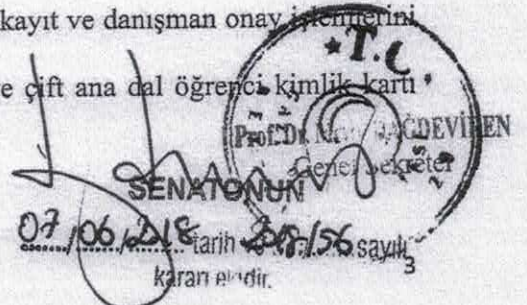 kayıt ve danışman onay işlemlerini
ve çift ana dal öğrenci kimlik kartı
T.C.
Prof.Dr. DAĞDEVİREN
Genel Sekreter
SENATONUN
07/06/2018 tarih 2018/56 sayılı
3
kararı ekidir.